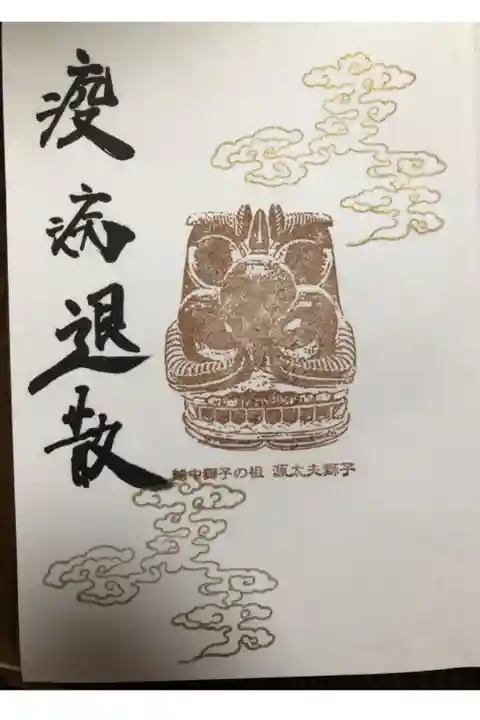 疫病退散
越中獅子の祖 源太夫獅子